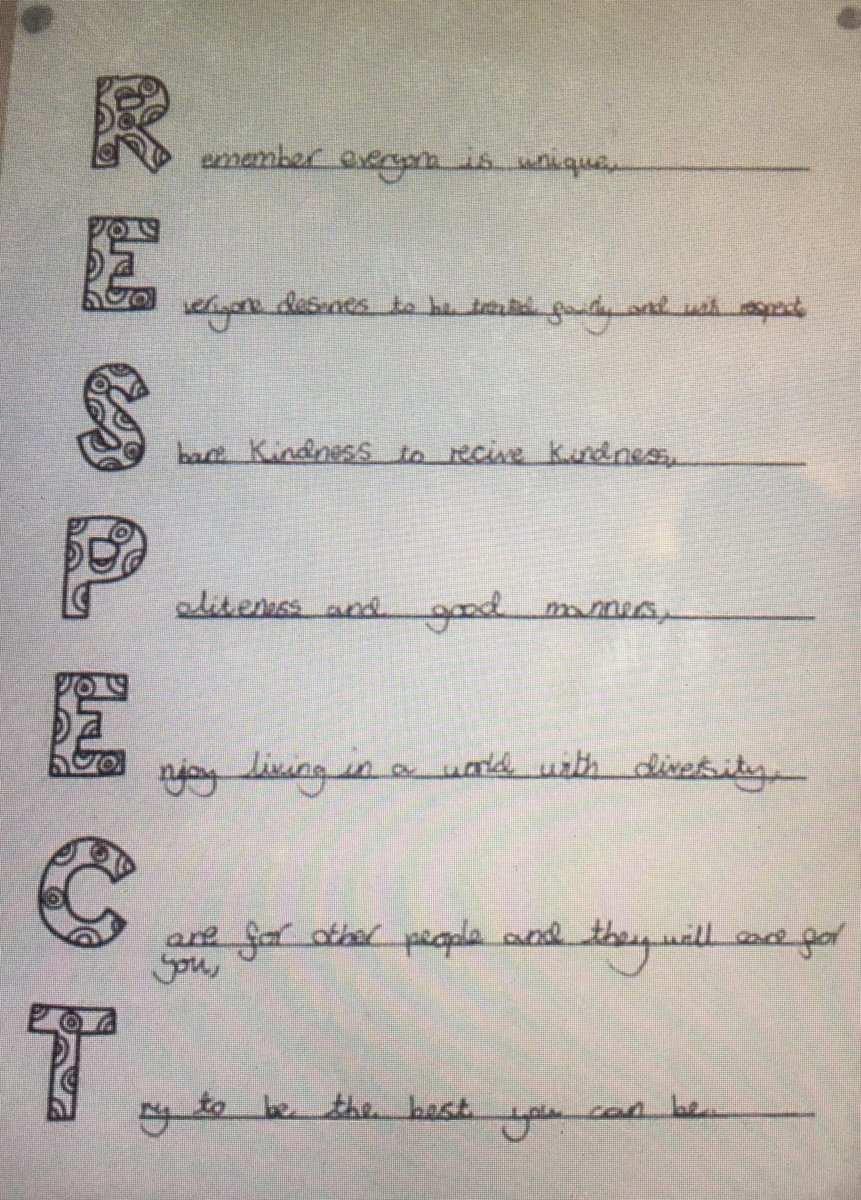 Remember everyone is unique,
Everyone deserves to be treated fairly and with respect
Share Kindness to recive Kindness,
Politeness and good manners,
Enjoy living in a world with diversity,
Care for other people and they will care for
you,
Try to be the best you can be.